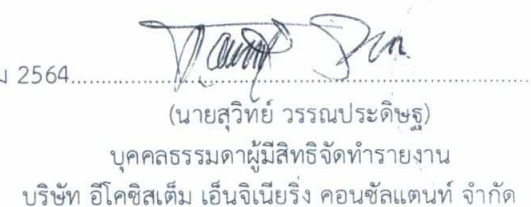 ม 2564
(นายสุวิทย์ วรรณประดิษฐ)
บุคคลธรรมดาผู้มีสิทธิจัดทำรายงาน
บริษัท อีโคซิสเต็ม เอ็นจิเนียริ่ง คอนซัลแตนท์ จำกัด